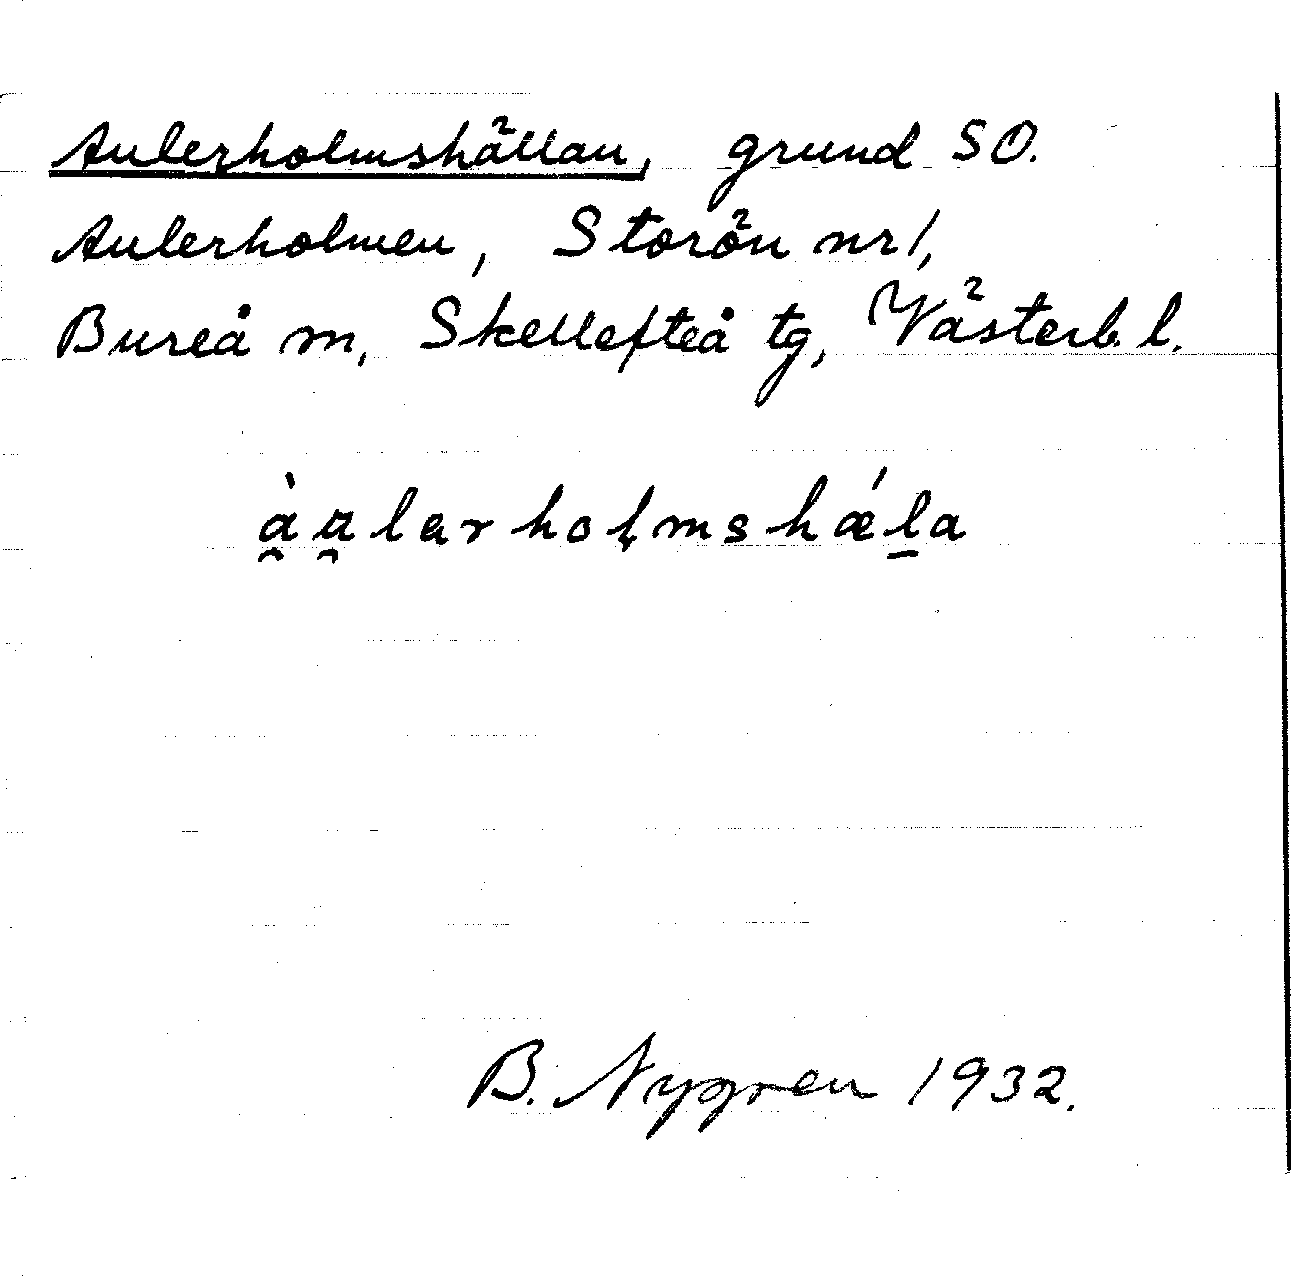 Aulerholmshällan, grund SO.
Aulerholmen, Storön nr 1,
Bureå m, Skellefteå tg, Västerb. l.
B. Nygren 1932.